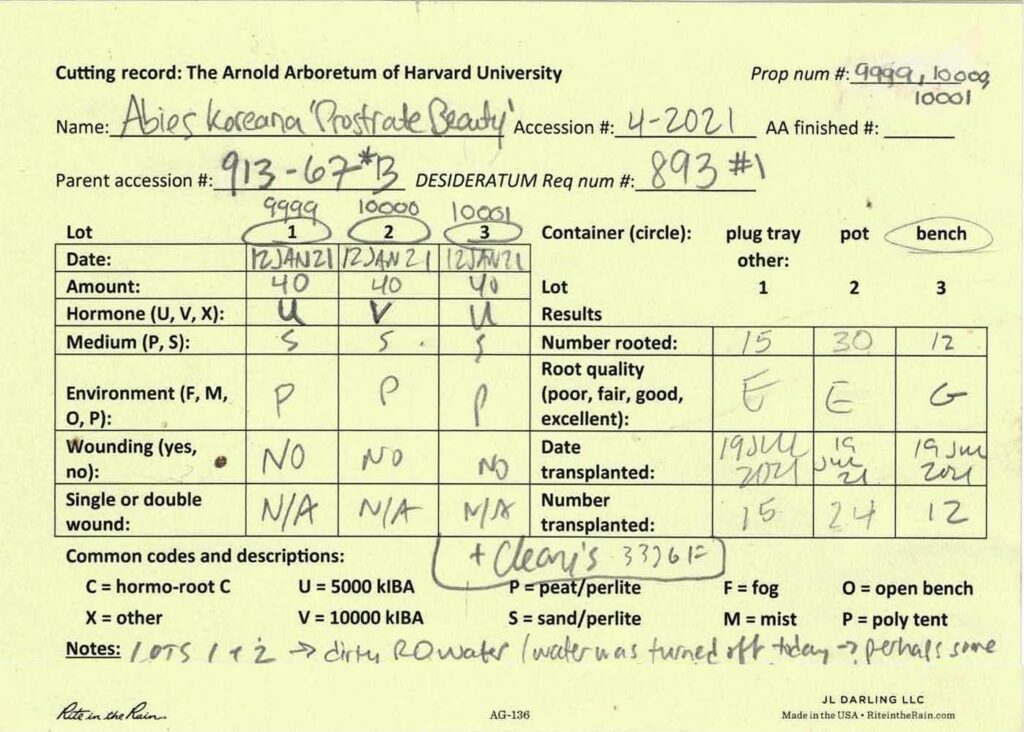 Cutting record: The Arnold Arboretum of Harvard University Prop num #: 9999, 10000,
10001
Name: Abies Koreana 'Prostrate Beauty' Accession #: 4-2021 AA finished #:
Parent accession #: 913-67*B DESIDERATUM Req num #: 893 #1
9999 10000 10001
Lot 1 2 3 Container (circle): plug tray pot bench
Date: 12JAN21 12JAN21 12JAN21 other:
Amount: 40 40 40 Lot 1 2 3
Hormone (U, V, X): U V U Results
Medium (P, S): S S S Number rooted: 15 30 12
Environment (F, M, O, P): P P P Root quality (poor, fair, good, excellent): E E G
Wounding (yes, no): NO NO NO Date transplanted: 19 JUL 2021 19 JUL 21 19 Jul 2021
Single or double wound: N/A N/A N/A Number transplanted: 15 24 12
Common codes and descriptions: + Cleary's 3336F
C = hormo-root C U = 5000 kIBA P = peat/perlite F = fog O = open bench
X = other V = 10000 kIBA S = sand/perlite M = mist P = poly tent
Notes: LOTS 1 + 2 → dirty RO water / water was turned off today → perhaps some
Rite in the Rain AG-136 JL DARLING LLC
Made in the USA • RiteintheRain.com